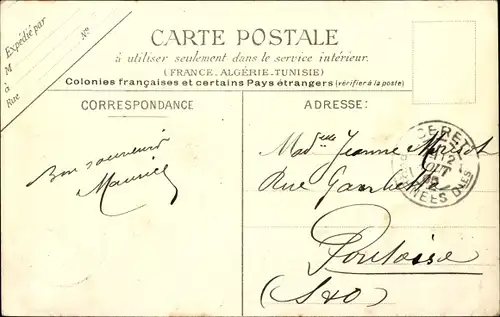 Expédié par
M
à
Rue
Nº
CARTE POSTALE
à utiliser seulement dans le service intérieur.
(FRANCE, ALGÉRIE-TUNISIE)
Colonies françaises et certains Pays étrangers (vérifier à la poste)
CORRESPONDANCE
ADRESSE:
Bon souvenir
Maurice
Madelle Jeanne
Rue Gambetta
Pontoise
(S&O)
CERET
12
OUT